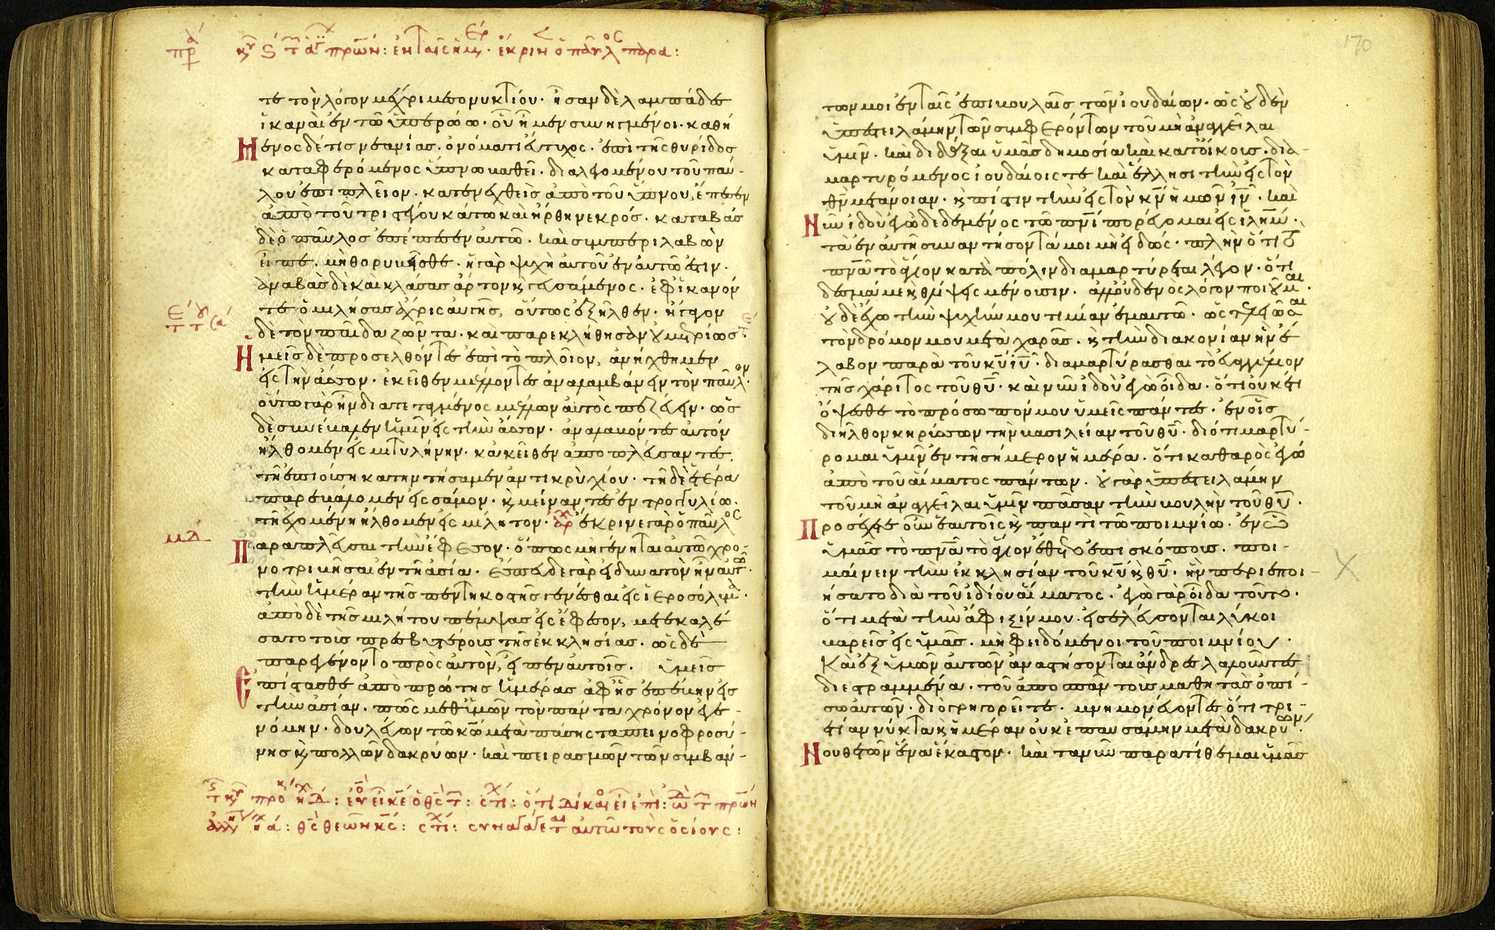 τε τὸν λόγον μέχρι μεσονυκτίου· ἦσαν δὲ λαμπάδες
ἱκαναὶ ἐν τῶ ὑπερώω· οὗ ἦμεν συνηγμένοι· καθή
μενος δέ τις νεανίας· ὀνόματι εὔτυχος· ἐπὶ τῆς θυρίδος
καταφερόμενος ὕπνω βαθεῖ· διαλεγομένου τοῦ παύ-
λου ἐπὶ πλεῖον· κατενεχθεὶς ἀπὸ τοῦ ὕπνου, ἔπεσεν
ἀπὸ τοῦ τριστέγου κάτω καὶ ἤρθη νεκρός· καταβὰς
δὲ ὁ παῦλος ἐπέπεσεν αὐτῶ· καὶ συμπεριλαβὼν
εἶπε· μὴ θορυβεῖσθε· ἡ γὰρ ψυχὴ αὐτοῦ ἐν αὐτῶ ἐστιν·
ἀναβὰς δὲ καὶ κλάσας ἄρτον κ γευσάμενος· ἐφ ἱκανόν
τε ὁμιλήσας ἄχρις αὐγῆς, οὕτως ἐξῆλθεν· ἤγαγον
δὲ τὸν παῖδα ζῶντα· καὶ παρεκλήθησαν οὐ μετρίως·
Ἡμεῖς δὲ προσελθόντες ἐπὶ τὸ πλοῖον, ἀνήχθημεν
εἰς τὴν ἄσσον· ἐκεῖθεν μέλλοντες ἀναλαμβάνειν τὸν παῦλον·
οὕτω γὰρ ἦν διατεταγμένος μέλλων αὐτὸς πεζεύειν· ὡς
δὲ συνέβαλεν ἡμῖν εἰς τὴν ἄσσον· ἀναλαβόντες αὐτόν
ἤλθομεν εἰς μιτυλήνην· κἀκεῖθεν ἀποπλεύσαντες
τῆ ἐπιούση κατηντήσαμεν ἀντικρὺ χίου· τῆ δὲ ἑτέρα
παρεβάλομεν εἰς σάμον· κ μείναντες ἐν τρογυλίω·
τῆ ἐχομένη ἤλθομεν εἰς μίλητον· ἔκρινε γὰρ ὁ παῦλος
Παραπλεῦσαι τὴν ἔφεσον· ὅπως μὴ γένηται αὐτῶ χρο-
νοτριβῆσαι ἐν τῆ ἀσία· ἔσπευδε γὰρ εἰ δυνατὸν ἦν αὐτῶ·
τὴν ἡμέραν τῆς πεντηκοστῆς γενέσθαι εἰς ἱεροσόλυμα·
ἀπὸ δὲ τῆς μιλήτου πέμψας εἰς ἔφεσον, μετεκαλέ
σατο τοὺς πρεσβυτέρους τῆς ἐκκλησίας· ὡς δὲ
παρεγένοντο πρὸς αὐτὸν, εἶπεν αὐτοῖς· ὑμεῖς
Ἐπίστασθε ἀπὸ πρώτης ἡμέρας ἀφ ἧς ἐπέβην εἰς
τὴν ἀσίαν· πῶς μεθ ὑμῶν τὸν πάντα χρόνον ἐγε-
νόμην· δουλεύων τῶ κω μετὰ πάσης ταπεινοφροσύ-
νης κ πολλῶν δακρύων· καὶ πειρασμῶν τῶν συμβάν-
170
των μοι ἐν ταῖς ἐπιβουλαῖς τῶν ἰουδαίων· ὡς οὐδὲν
ὑπεστειλάμην τῶν συμφερόντων τοῦ μὴ ἀναγγεῖλαι
ὑμῖν· καὶ διδάξαι ὑμᾶς δημοσία καὶ κατ οἴκους· δια-
μαρτυρόμενος ἰουδαίοις τε καὶ ἕλλησι τὴν εἰς τὸν
θν μετάνοιαν· κ πίστιν τὴν εἰς τὸν κν ἡμῶν ιν· καὶ
Νῦν ἰδοὺ ἐγὼ δεδεμένος τῶ πνι πορεύομαι εἰς ιλημ·
τὰ ἐν αὐτῆ συναντήσοντά μοι μὴ εἰδώς· πλὴν ὅτι τὸ
πνα τὸ ἅγιον κατὰ πόλιν διαμαρτύρεται λέγον· ὅτι
δεσμά με κ θλίψεις μένουσιν· ἀλλ οὐδενὸς λόγον ποιοῦμαι
οὐδὲ ἔχω τὴν ψυχήν μου τιμίαν ἐμαυτῶ· ὡς τελειῶσαι
τὸν δρόμον μου μετὰ χαρᾶς· κ τὴν διακονίαν ἣν ἔ
λαβον παρὰ τοῦ κυ ιυ· διαμαρτύρασθαι τὸ εὐαγγέλιον
τῆς χάριτος τοῦ θυ· καὶ νῦν ἰδοὺ ἐγὼ οἶδα· ὅτι οὐκέτι
ὄψεσθε τὸ πρόσωπόν μου ὑμεῖς πάντες· ἐν οἷς
διῆλθον κηρύσσων τὴν βασιλείαν τοῦ θυ· διότι μαρτύ-
ρομαι ὑμῖν ἐν τῆ σήμερον ἡμέρα· ὅτι καθαρὸς ἐγὼ
ἀπὸ τοῦ αἵματος πάντων· οὐ γὰρ ὑπεστειλάμην
τοῦ μὴ ἀναγγεῖλαι ὑμῖν πᾶσαν τὴν βουλὴν τοῦ θυ·
Προσέχετε οὖν ἑαυτοῖς κ παντὶ τῶ ποιμνίω· ἐν ὧ
ὑμᾶς τὸ πνα τὸ ἅγιον ἔθετο ἐπισκόπους· ποι-
μαίνειν τὴν ἐκκλησίαν τοῦ κυ κ θυ· ἣν περιεποι-
ήσατο διὰ τοῦ ἰδίου αἵματος· ἐγὼ γὰρ οἶδα τοῦτο·
ὅτι μετὰ τὴν ἄφιξίν μου· εἰσελεύσονται λύκοι
βαρεῖς εἰς ὑμᾶς· μὴ φειδόμενοι τοῦ ποιμνίου·
Καὶ ἐξ ὑμῶν αὐτῶν ἀναστήσονται ἄνδρες λαλοῦντες
διεστραμμένα· τοῦ ἀποσπᾶν τοὺς μαθητὰς ὀπί-
σω αὐτῶν· διὸ γρηγορεῖτε· μνημονεύοντες ὅτι τρι-
ετίαν νύκτα κ ἡμέραν οὐκ ἐπαυσάμην μετὰ δακρύων·
Νουθετῶν ἕνα ἕκαστον· καὶ τανῦν παρατίθεμαι ὑμᾶς